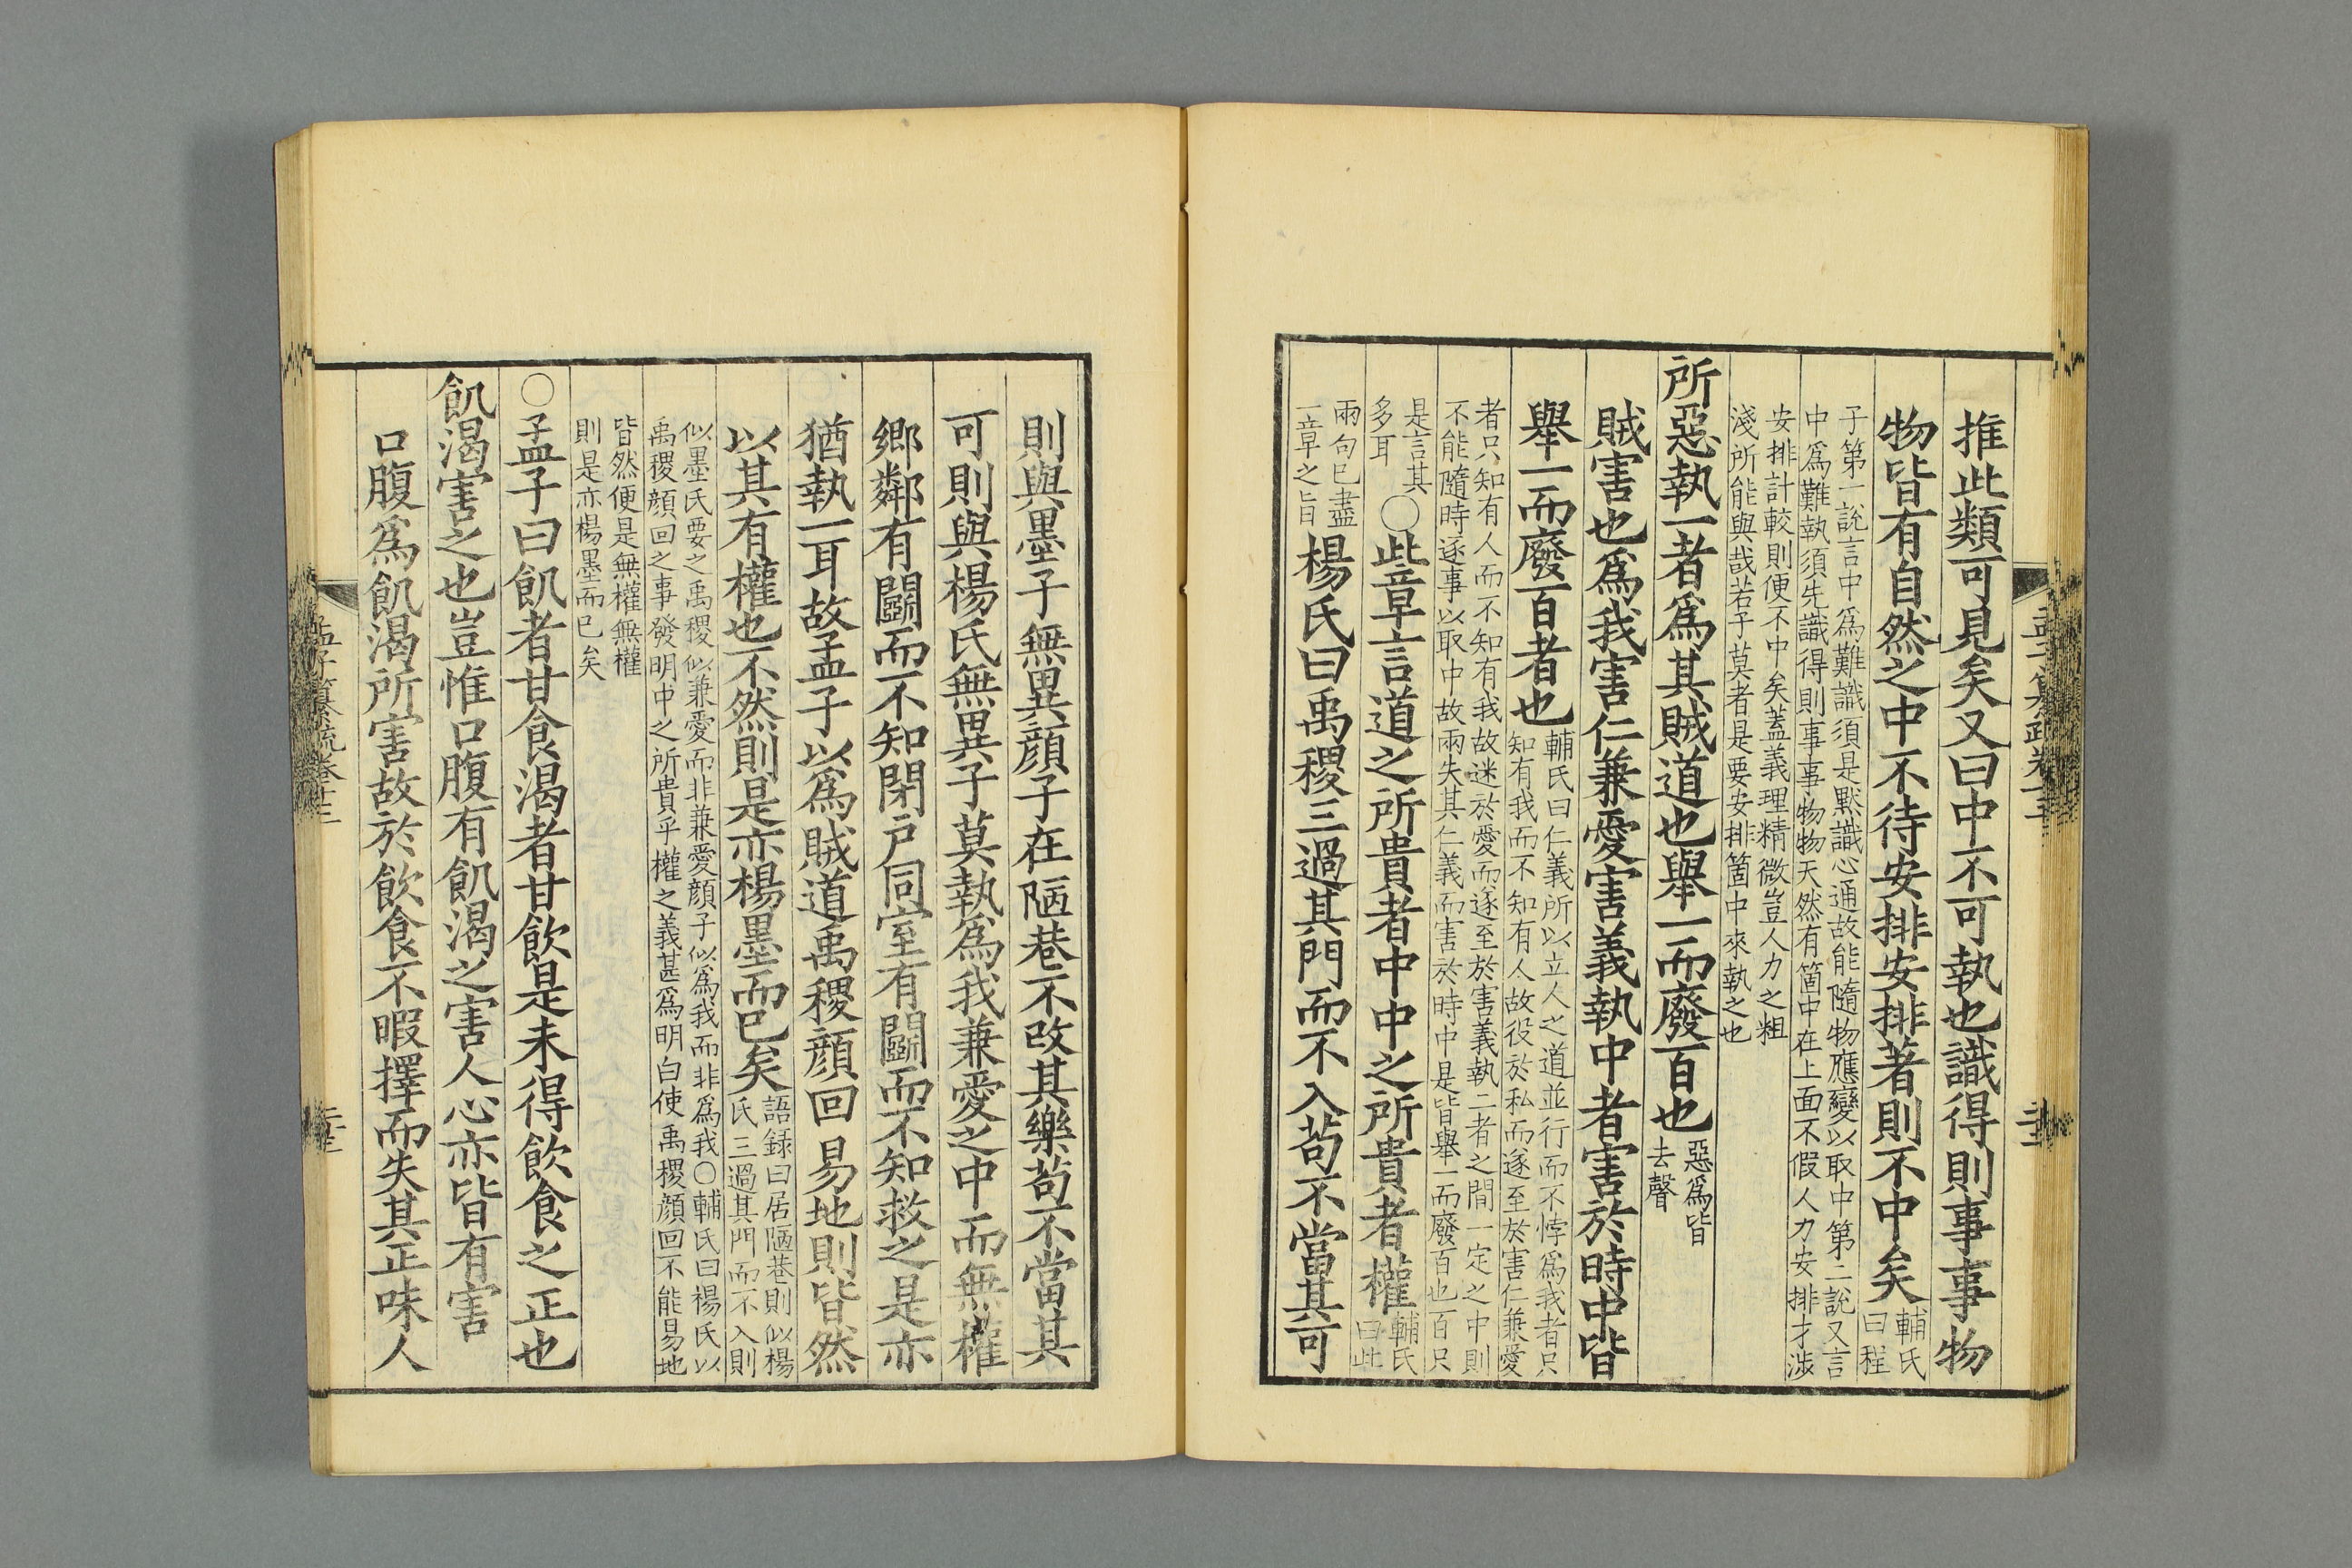 推此類可見矣又曰中不可執也識得則事事物
物皆有自然之中不待安排安排著則不中矣輔氏
曰程
子第一說言中為難識須是默識心通故能隨物應變以取中第二說又言
中為難執須先識得則事事物物天然有箇中在上面不假人力安排才涉
安排計較則便不中矣蓋義理精微豈人力之粗
淺所能與哉若子莫者是要安排箇中來執之也
所惡執一者爲其賊道也舉一而廢百也惡爲皆
去聲
賊害也爲我害仁兼愛害義執中者害於時中皆
舉一而廢百者也輔氏曰仁義所以立人之道並行而不悖爲我者只
知有我而不知有人故役於私而遂至於害仁兼愛
者只知有人而不知有我故迷於愛而遂至於害義執二者之間一定之中則
不能隨時逐事以取中故兩失其仁義而害於時中是皆舉一而廢百也百只
是言其
多耳
○此章言道之所貴者中中之所貴者權輔氏
曰此
兩句已盡
一章之旨
楊氏曰禹稷三過其門而不入苟不當其可
孟子纂疏卷十三
則與墨子無異顔子在陋巷不改其樂苟不當其
可則與楊氏無異子莫執爲我兼愛之中而無權
鄉鄰有鬭而不知閉戶同室有鬭而不知救之是亦
猶執一耳故孟子以爲賊道禹稷顔回易地則皆然
以其有權也不然則是亦楊墨而已矣語録曰居陋巷則似楊
氏三過其門而不入則
似墨氏要之禹稷似兼愛而非兼愛顔子似爲我而非爲我○輔氏曰楊氏以
禹稷顔回之事發明中之所貴乎權之義甚爲明白使禹稷顔回不能易地
皆然便是無權無權
則是亦楊墨而已矣
○孟子曰飢者甘食渴者甘飲是未得飲食之正也
飢渴害之也豈惟口腹有飢渴之害人心亦皆有害
口腹爲飢渴所害故於飲食不暇擇而失其正味人
孟子纂疏卷十三